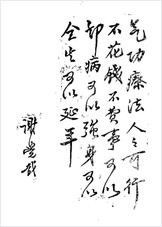 气功療法人々可行
不花錢不費事可以
却病可以強身可以
全生可以延年
謝覺哉